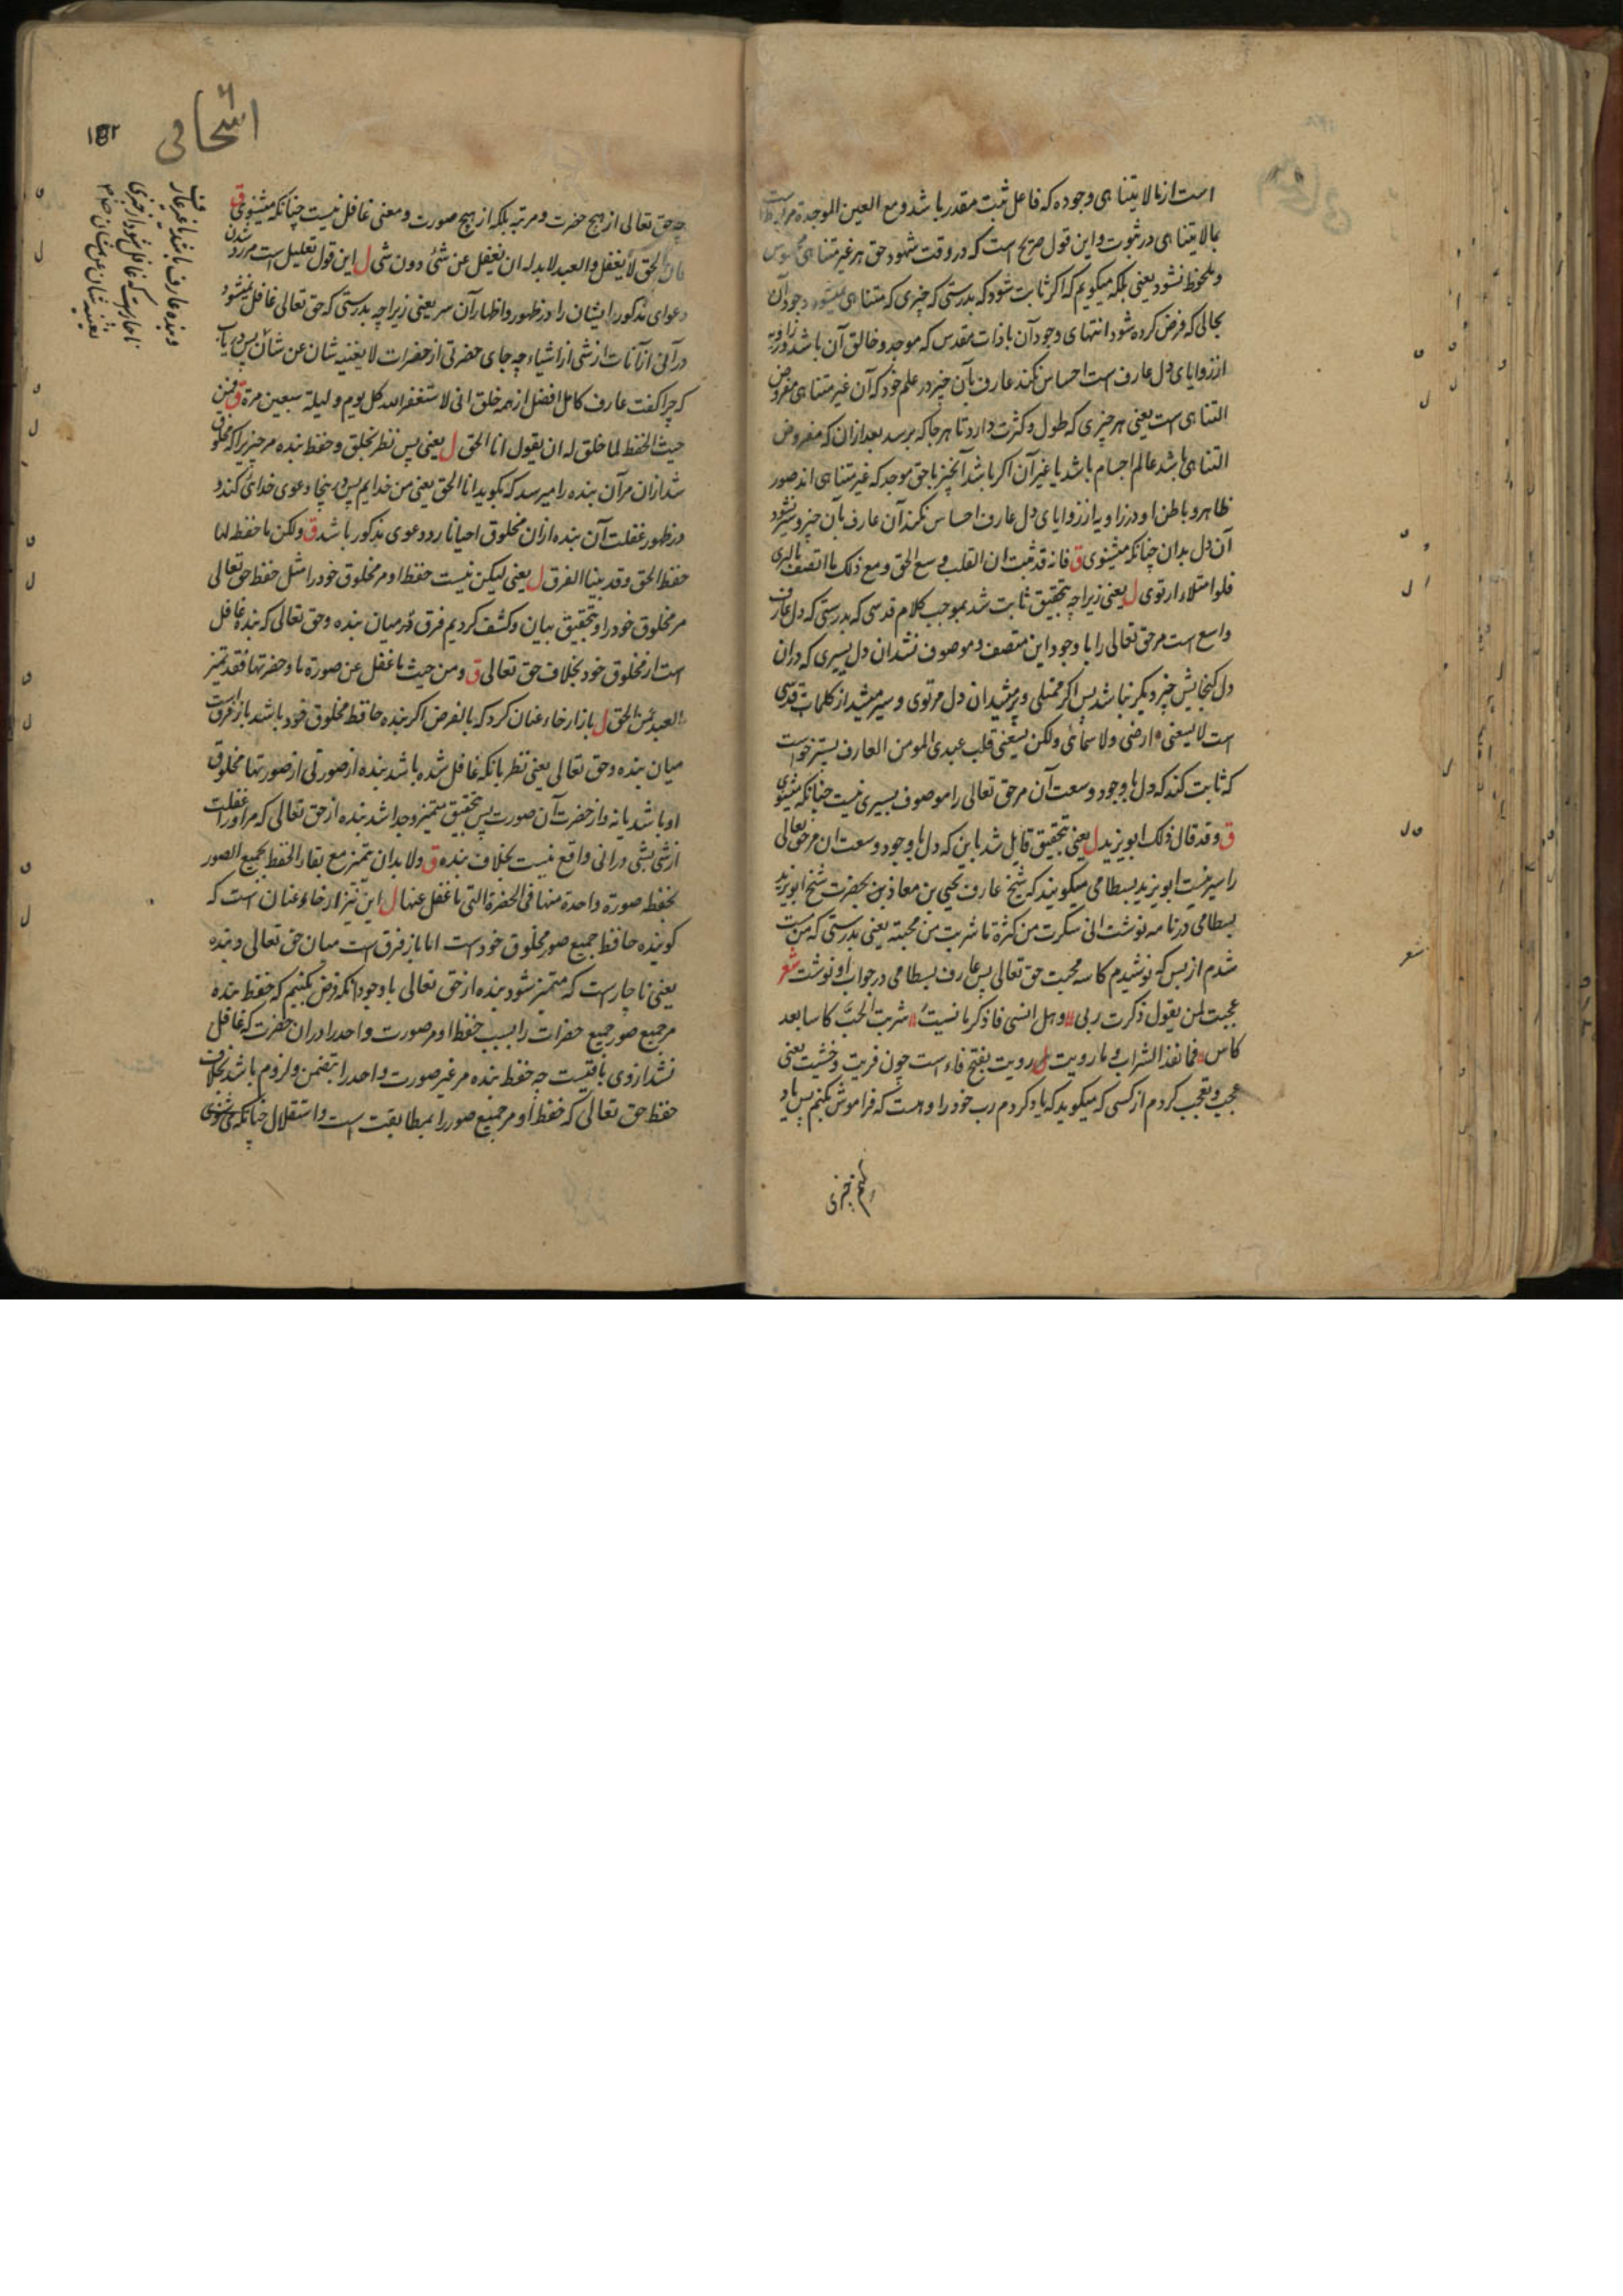 است از ما لا یتناهی وجوده که فاعل ثبت مقدر باشد و مع العین الموجدة مر
بما لا یتناهی در ثبوت و این قول صریح است که در وقت شهود حق هر غیر متناهی محسوس
و ملحوظ نشود یعنی بلکه میکویم که اکر ثابت شود که بدرستی که چیزی که متناهی نمیشود وجود آن
بحالی که فرض کرده شود انتهای وجود آن با ذات مقدس که موجد و خالق آن باشد در زاویه
از زوایای دل عارف است احساس نکند عارف بآن چیز در علم خود که آن غیر متناهی مفروض
التناهی است یعنی هر چیزی که طول و کثرت دارد تا هر جا که برسد بعد از ان که مفروض
التناهی باشد عالم اجسام باشد یا غیر آن اکر باشد آنچیز با حق موجد که غیر متناهی اند صور
ظاهر و باطن او در زاویه از زوایای دل عارف احساس نکند آن عارف بآن چیز و سیر نشود
آن دل بدان چنانکه مثنوی ق فانه قد ثبت ان القلب وسع الحق و مع ذلک ما اتصف بالری
فلو امتلاء ارتوی ل یعنی زیرا چه بتحقیق ثابت شد بموجب کلام قدسی که بدرستی که دل عارف
واسع است مر حق تعالی را با وجود این متصف و موصوف نشد ان دل بسیری که در ان
دل کنجایش چیز دیکر نباشد پس اکر ممتلی و پر میشد ان دل مرتوی و سیر میشد از کلمات قدسی
است لا یسعنی ارضی ولا سمائی ولکن یسعنی قلب عبدی المومن العارف بستر خواست
که ثابت کند که دل با وجود وسعت آن مر حق تعالی را موصوف بسیری نیست چنانکه مثنوی
ق و قد قال ذلک ابو یزید ل یعنی بتحقیق قایل شد باین که دل با وجود وسعت ان مر حق تعالی
را سیر نیست ابو یزید بسطامی میکویند که شیخ عارف یحیی بن معاذ بحضرت شیخ ابو یزید
بسطامی در نامه نوشت انی سکرت من کثرة ما شربت من محبته یعنی بدرستی که من مست
شدم از بس که نوشیدم کاسه محبت حق تعالی پس عارف بسطامی در جواب او نوشت شعر
عجبت لمن یقول ذکرت ربی وهل انسی فاذکر ما نسیت شربت الحب کاسا بعد
کاس فما نفذ الشراب و ما رویت ل رویت بفتح فاء است چون فریت و خشیت یعنی
عجب و تعجب کردم از کسی که میکوید که یاد کردم رب خود را و هست که فراموش بکنم پس یاد
چه حق تعالی از هیچ حضرت و مرتبه بلکه از هیچ صورت و معنی غافل نیست چنانکه مثنوی ق
فان الحق لا یغفل والعبد لا بد له ان یغفل عن شئ دون شی ل این قول تعلیل است مر رد شدن
دعوای مذکور ایشان را در ظهور و اظهار آن سر یعنی زیرا چه بدرستی که حق تعالی غافل نمیشود
در آنی از آنات از شی از اشیاء چه جای حضرتی از حضرات لا یغنیه شان عن شان پس دریاب
که چرا کفت عارف کامل افضل از همه خلق انی لاستغفر الله کل یوم و لیلة سبعین مرة ق فمن
حیث الحفظ لما خلق له ان یقول انا الحق ل یعنی پس نظر بخلق و حفظ بنده مر چیز را که مخلوق
شد از ان مر آن بنده را میرسد که بکوید انا الحق یعنی من خدایم پس درینجا دعوی خدائی کند و
در ظهور غفلت آن بنده از ان مخلوق احیانا رد دعوی مذکور باشد ق ولکن ما حفظه لها
حفظ الحق وقد بینا الفرق ل یعنی لیکن نیست حفظ او مر مخلوق خود را مثل حفظ حق تعالی
مر مخلوق خود را و بتحقیق بیان و کشف کردیم فرق در میان بنده و حق تعالی که بنده غافل
است از مخلوق خود بخلاف حق تعالی ق ومن حیث ما غفل عن صورة ما وحضرتها فقد تمیز
العبد من الحق ل باز ارخاء عنان کرد که بالفرض اکر بنده حافظ مخلوق خود باشد باز فرق است
میان بنده و حق تعالی یعنی نظر بانکه غافل شده باشد بنده از صورتی از صورتها مخلوق
او باشد یا نه و از حضرت آن صورت پس بتحقیق متمیز و جدا شد بنده از حق تعالی که مر او را غفلت
از شی بشی در انی واقع نیست بخلاف بنده ق ولا بد ان یتمیز مع بقاء الحفظ بجمیع الصور
بحفظه صورة واحدة منها فی الحضرة التی ما غفل عنها ل این نیز ارخاء عنان است که
کو بنده حافظ جمیع صور مخلوق خود است اما باز فرق است میان حق تعالی و بنده
یعنی ناچار است که متمیز شود بنده از حق تعالی با وجود آنکه فرض بکنیم که حفظ بنده
مر جمیع صور جمیع حضرات را بسبب حفظ او مر صورت واحد را در ان حضرت که غافل
نشد از وی باقیست چه حفظ بنده مر غیر صورت واحد را بتضمن و لزوم باشد بخلاف
حفظ حق تعالی که حفظ او مر جمیع صور را بمطابقت است و استقلال چنانکه مثنوی
و بنده عارف باشد یا غیر عارف
ناچار است که غافل شود از چیزی
یغنیه شان عن شان